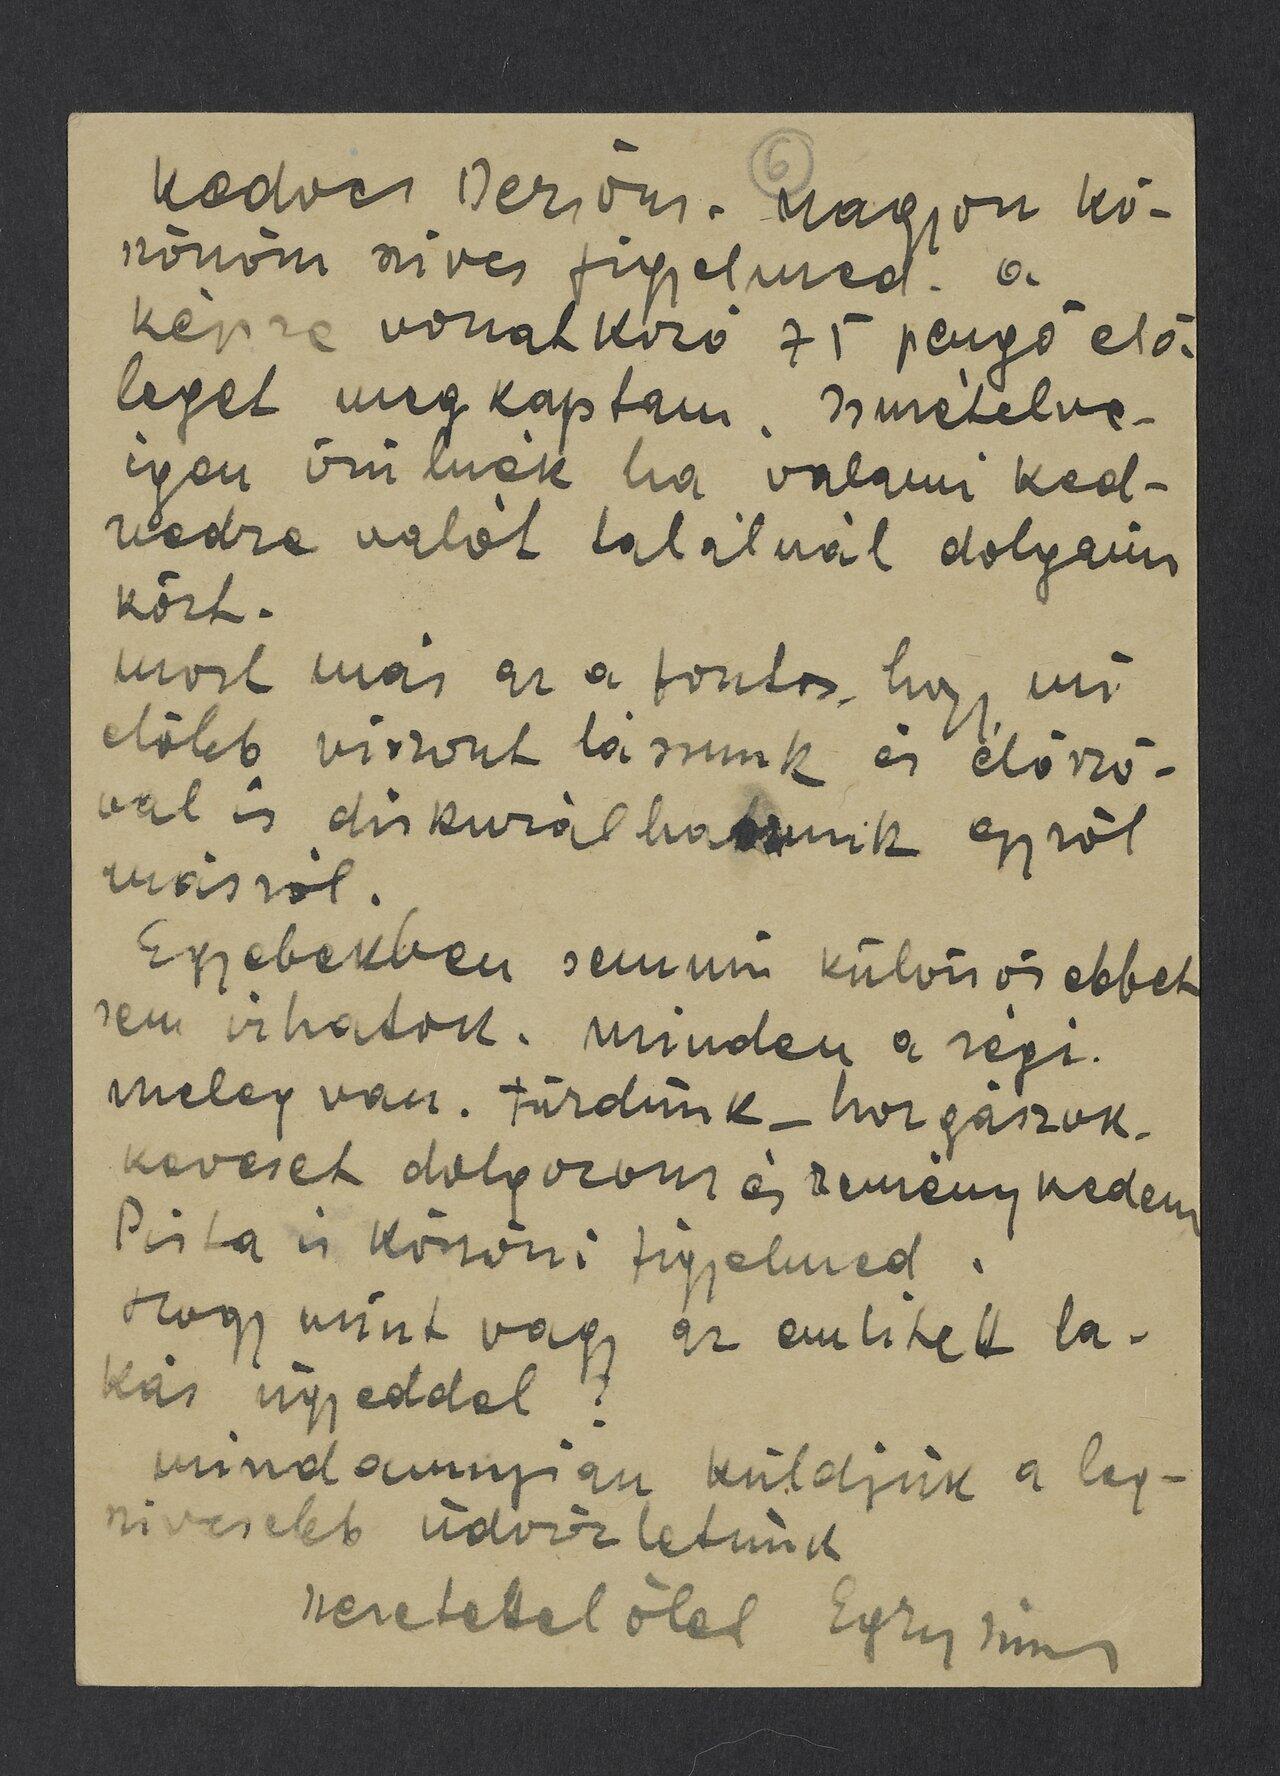 6
Kedves Dezsőm. Nagyon kö-
szönöm szives figyelmed. a
képre vonatkozó 75 pengő elő-
leget megkaptam. Ismételve-
igen örülnék ha valami ked-
vedre valót találnál dolgaim
közt.
most már az a fontos, hogy mi
előbb viszont lássunk és élőszó-
val is diskurálhassunk egyről
másról.
Egyebekben semmi különösebbet
sem irhatok. Minden a régi.
meleg van. fürdünk_horgászok.
keveset dolgozom és reménykedem
Pista is köszöni figyelmed.
Hogy mint vagy az emlitett la-
kás ügyeddel?
mindannyian küldjük a leg-
szivesebb üdvözletünk
szeretettel ölel Egry